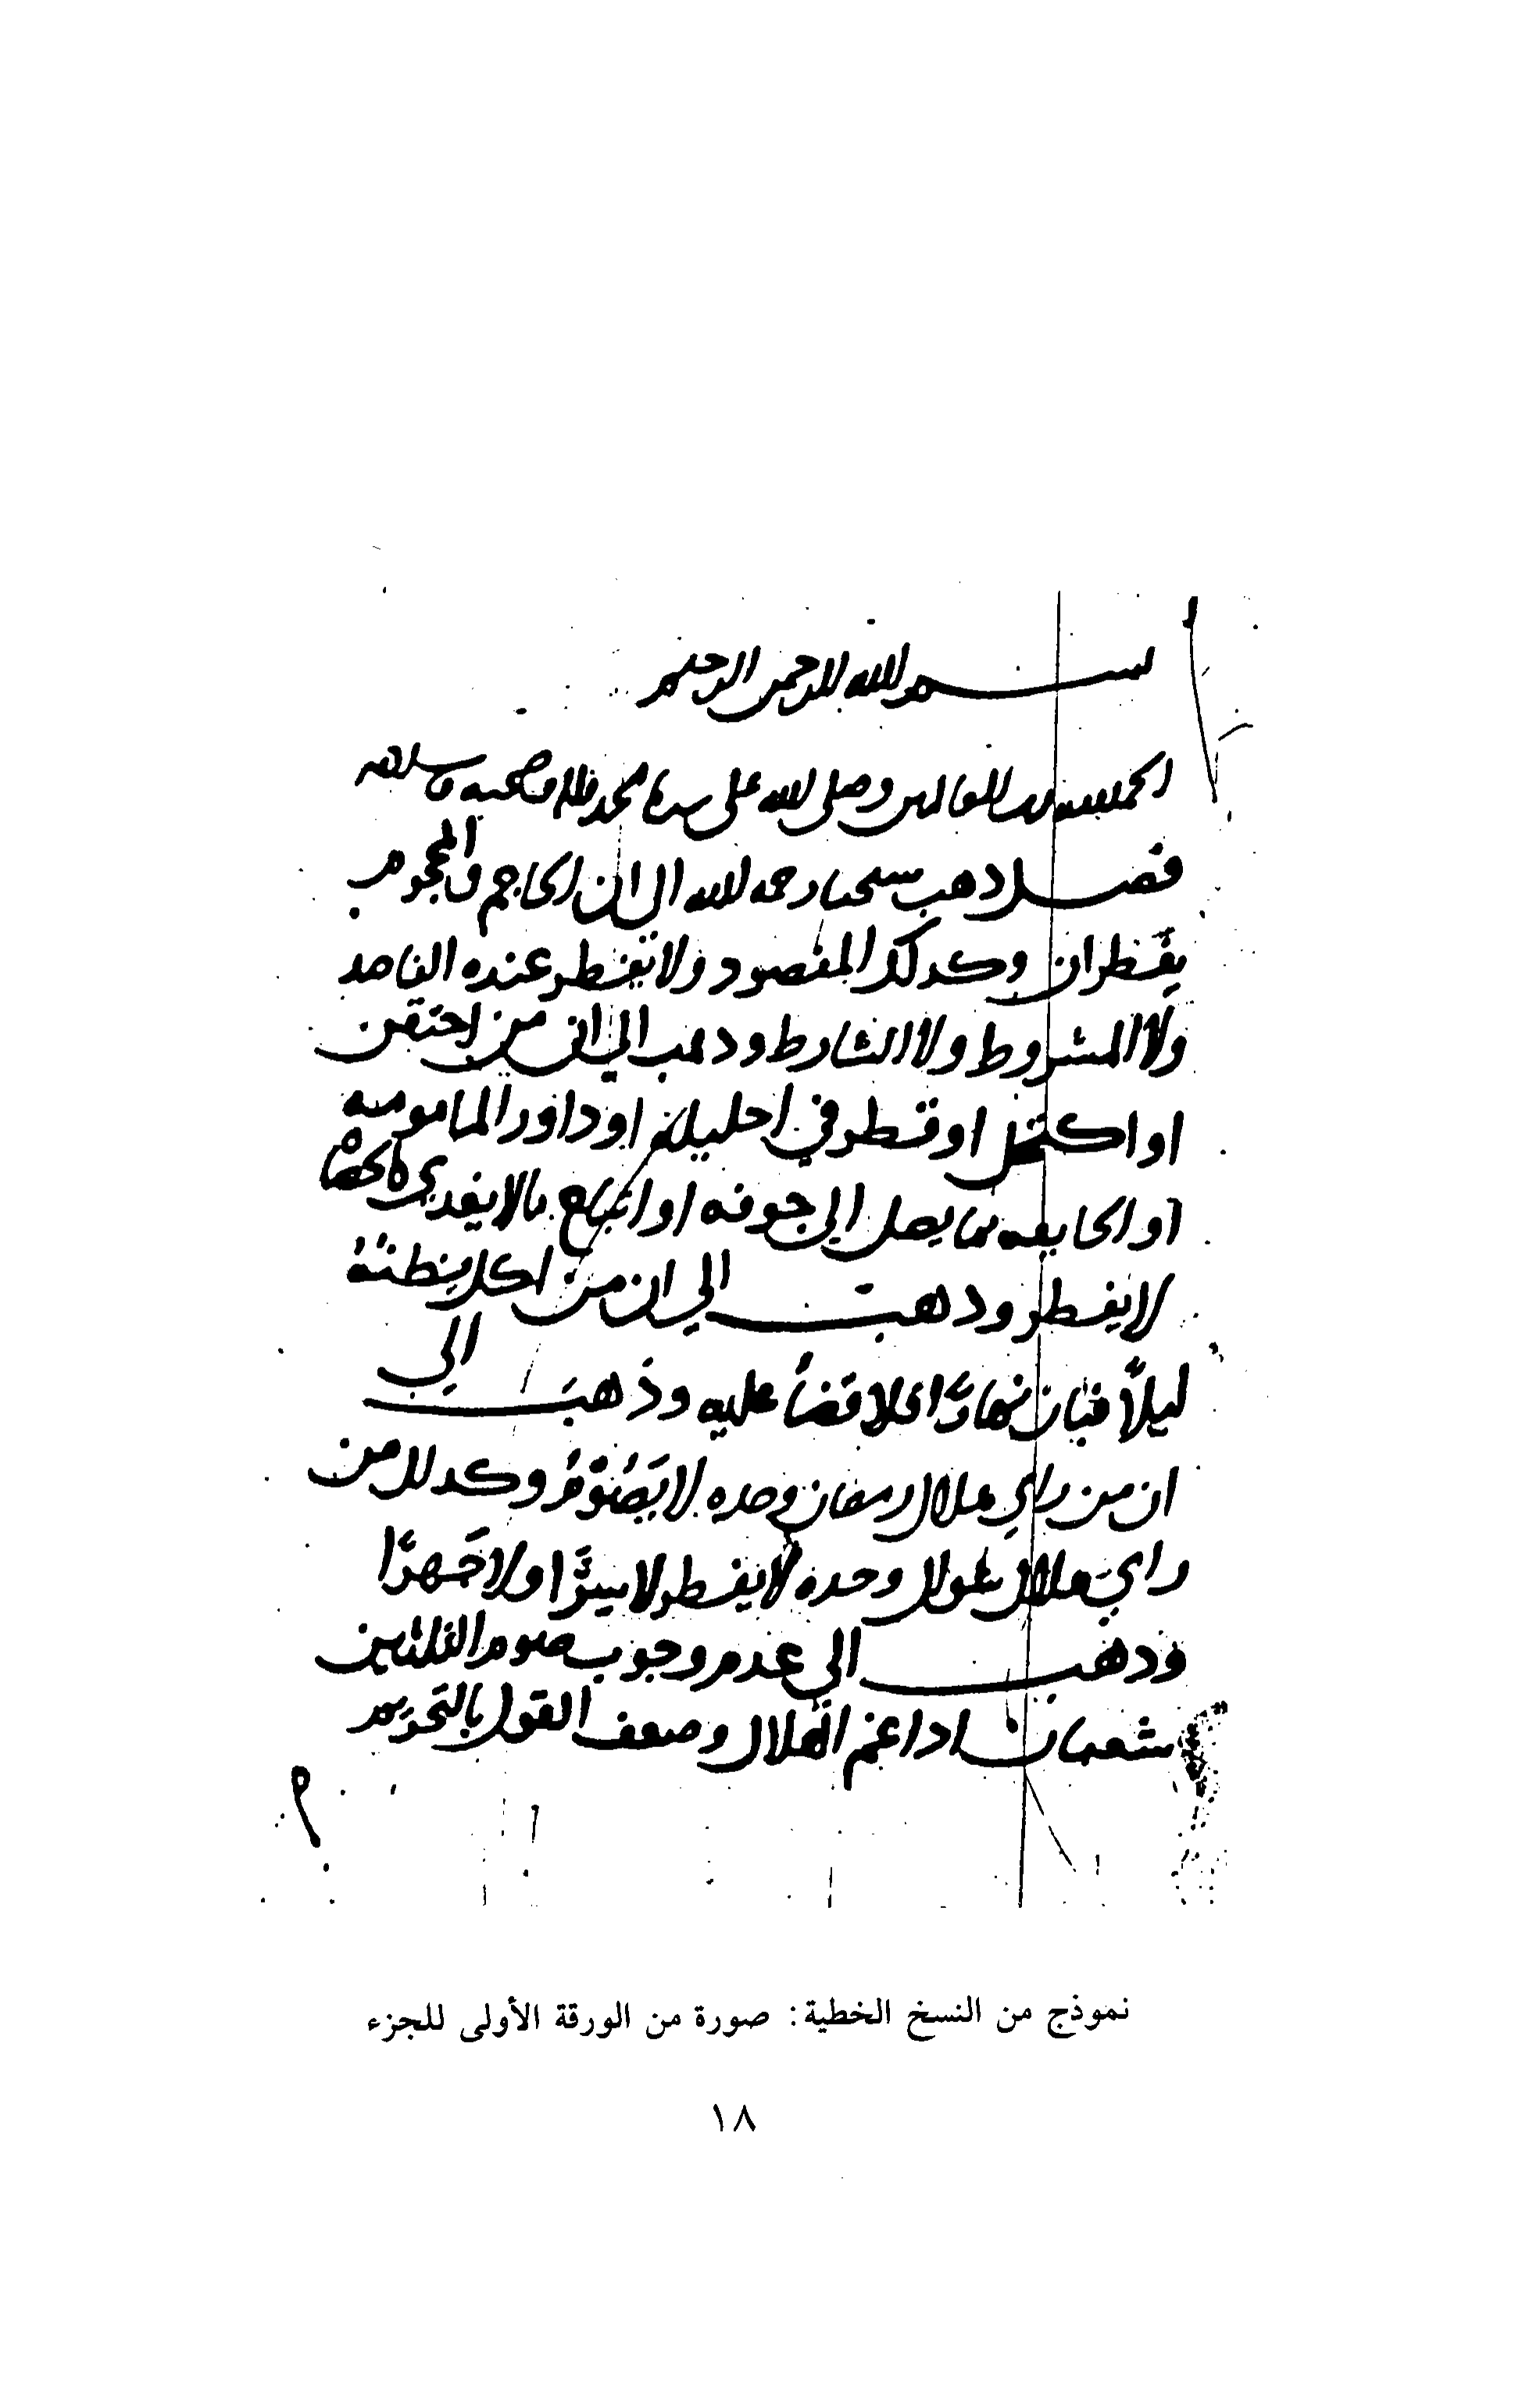 بسم الله الرحمن الرحيم
الحمد لله رب العالمين وصلى الله على سيدنا محمد واله وصحبه وسلم
فصل ذهب شيخنا رحمه الله الى ان الحاجم والمحجوم
يفطران وكذلك المفصود ولا يفطر عنده الفاصد
ولا المشروط ولا الشارط وذهب الي ان من احتقن
او اكتحل او قطر في احليله او داوي المامومه
او الجايفه بما يصل الي جوفه او ابتلع مالا يغدي كالحصاة
لا يفطر وذهب الي ان من اكل يظنه
ليلاً فبان نهارًا فلا قضاً عليه وذهبَ الي
ان من راي هلال رمضان وحده لا يَصُوْمُ وكذلك من
راي هلال شوال وحده لا يفطر لا سِرًّا ولا جَهرًا
وذهب الي عدم وجوب صوم الثلثين
شعبان اذا غم الهلال وضعف القول بالتحريم
نموذج من النسخ الخطية: صورة من الورقة الأولى للجزء
١٨